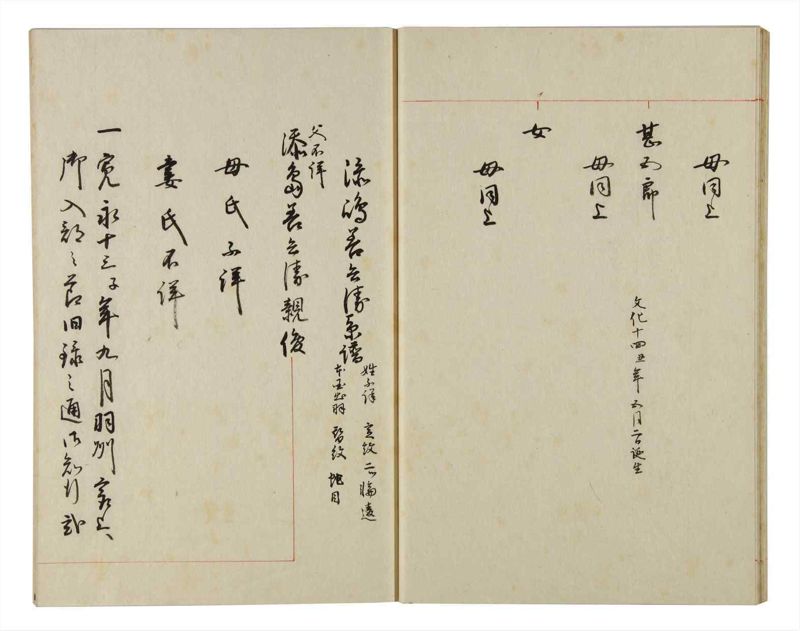 母同上
甚五郎
文化十四丑年五月二日誕生
母同上
女
母同上
添嶋善兵衛系譜
姓不詳 定紋 二輪違
本国出羽 替紋 蛇目
父不詳
添嶋善兵衛親俊
母氏不詳
妻氏不詳
一寛永十三子年九月羽州
御入部之節旧録之通御知行